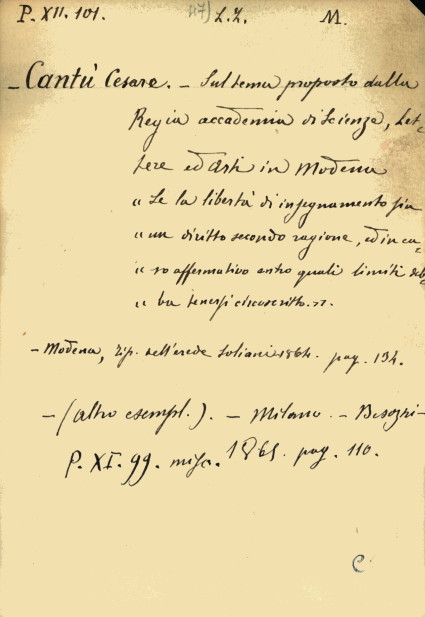 P. XII. 101. 47) L.Z. M.
- Cantù Cesare. - Sul tema proposto dalla
Regia accademia di Scienze, Let-
tere ed Arti in Modena
" Se la libertà di insegnamento sia
" un diritto secondo ragione, ed in ca-
" so affermativo entro quali limiti deb-
" ba tenersi circoscritto. "
- Modena, Tip. dell'erede Soliani 1864. pag. 134.
- (altro esempl.). - Milano. - Besozzi -
P. XI. 99. misc. 1865. pag. 110.
C